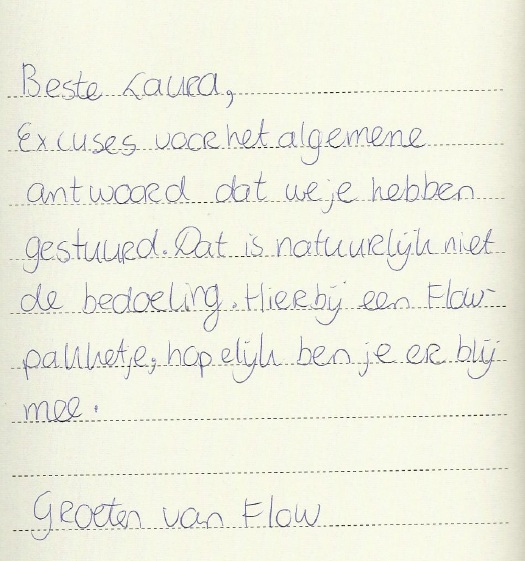 Beste Laura,
Excuses voor het algemene
antwoord dat we je hebben
gestuurd. Dat is natuurlijk niet
de bedoeling. Hierbij een Flow-
pakketje, hopelijk ben je er blij
mee.
Groeten van Flow